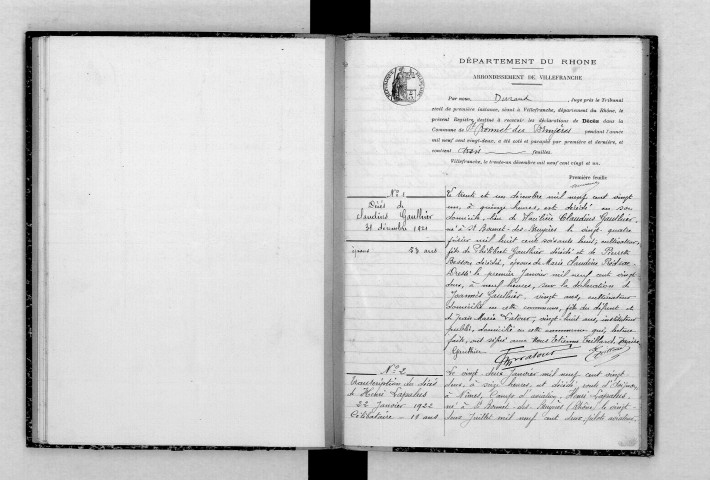 DÉPARTEMENT DU RHONE
ARRONDISSEMENT DE VILLEFRANCHE
Par nous, Durand, Juge près le Tribunal
civil de première instance, séant à Villefranche, département du Rhône, le
présent Registre destiné à recevoir les déclarations de Décès dans la
Commune de St Bonnet des Bruyères pendant l'année
mil neuf cent vingt-deux, a été coté et paraphé par première et dernière, et
contient trois feuilles.
Villefranche, le trente-un décembre mil neuf cent vingt et un.
Première feuille
No 1
Décès de
Claudius Gauthier
31 décembre 1921
époux 53 ans
Le trente et un décembre mil neuf cent vingt
un, à quinze heures, est décédé en son
domicile, lieu de Claudius Gauthier,
né à St Bonnet-des-Bruyères le vingt quatre
février mil huit cent soixante huit, cultivateur,
fils de Philibert Gauthier décédé et de Pierrette
décédée, époux de Marie Claudine
Dressé le premier Janvier mil neuf cent vingt
deux, à neuf heures, sur la déclaration de
Joannès Gauthier, vingt ans, cultivateur
domicilié en cette commune, fils du défunt et
de Jean Marie Latour, vingt huit ans, instituteur
public, domicilié en cette commune qui, lecture
faite, ont signé avec Nous Etienne
Gauthier
No 2
Transcription du décès
de Henri Lapalus
22 Janvier 1922
Célibataire - 19 ans
Le vingt deux Janvier mil neuf cent vingt
deux, à seize heures, est décédé, route d'
à Nîmes, Camp d'aviation, Henri Lapalus,
né à St Bonnet-des-Bruyères (Rhône) le vingt-
deux Juillet mil neuf cent deux, pilote aviateur,